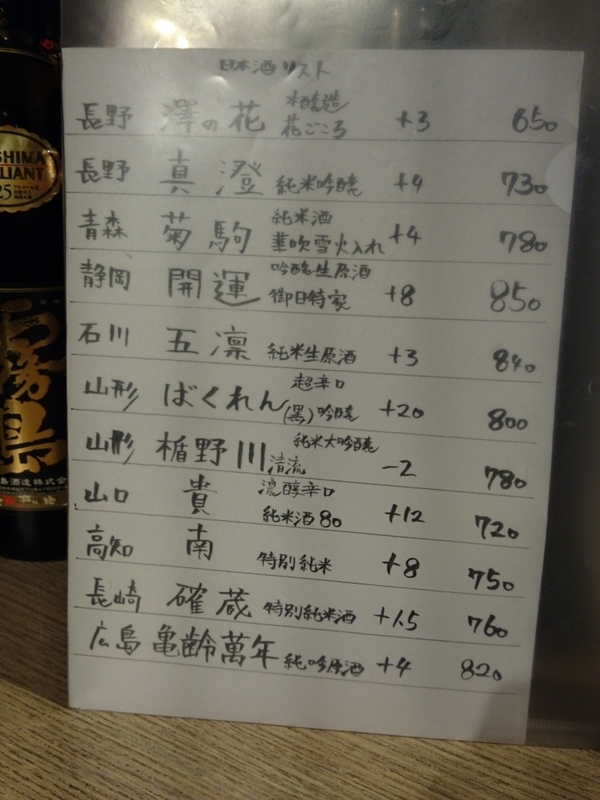 日本酒リスト
長野 澤の花 本醸造 花ごころ +3 650
長野 真澄 純米吟醸 +4 730
青森 菊駒 純米酒 華吹雪火入れ +4 780
静岡 開運 吟醸生原酒 御日待家 +8 850
石川 五凛 純米生原酒 +3 840
山形 ばくれん 超辛口 (黒)吟醸 +20 800
山形 楯野川 純米大吟醸 清流 -2 780
山口 貴 濃醇辛口 純米酒80 +12 720
高知 南 特別純米 +8 750
長崎 確蔵 特別純米酒 +1.5 760
広島 亀齢萬年 純吟原酒 +4 820
SHIMA
LLIANT
25
霧島
島酒造株式会社